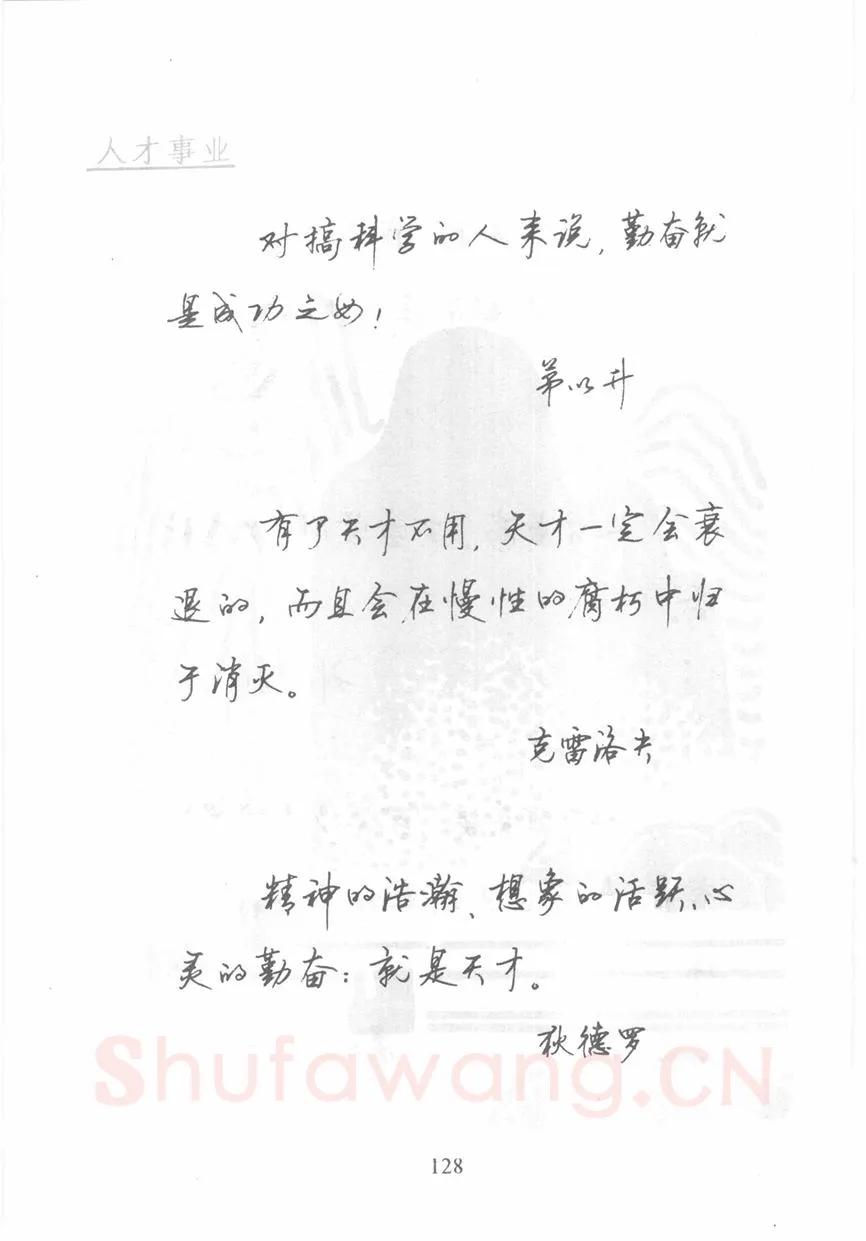 人才事业
对搞科学的人来说,勤奋就
是成功之母!
茅以升
有了天才不用,天才一定会衰
退的,而且会在慢性的腐朽中归
于消灭。
克雷洛夫
精神的浩瀚、想象的活跃、心
灵的勤奋:就是天才。
狄德罗
Shufawang.CN
128